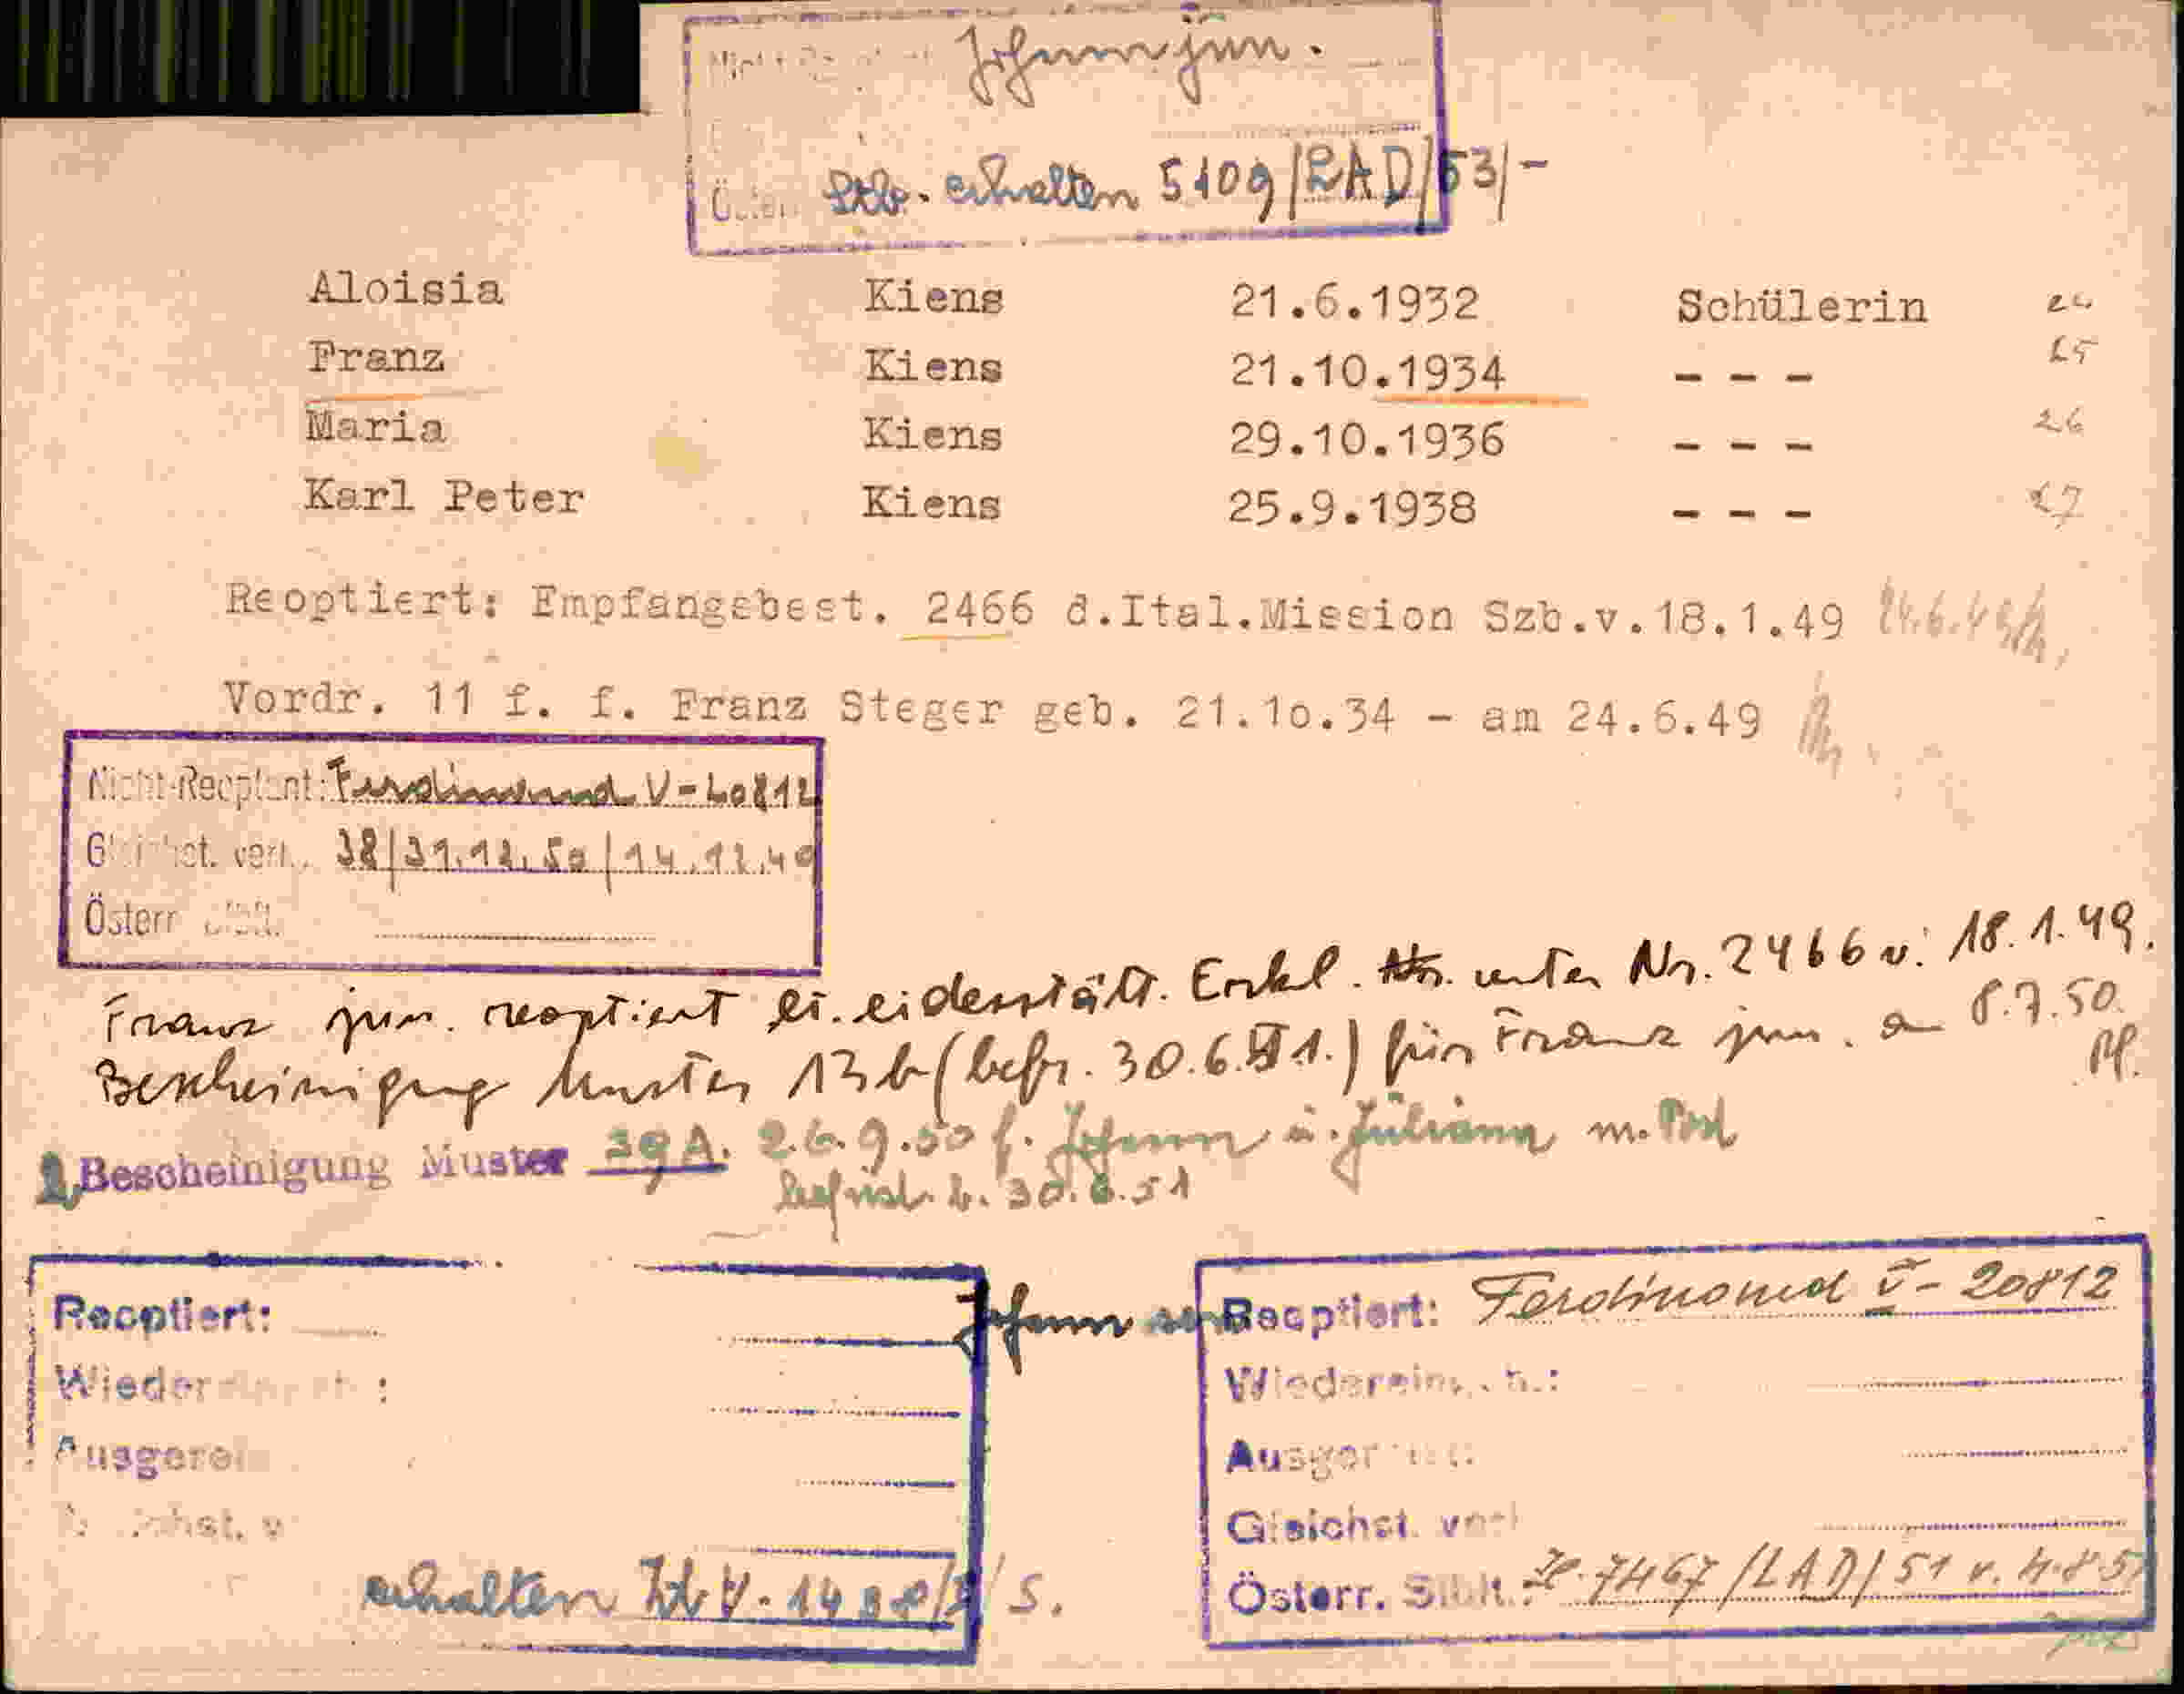 Johann jun.
Stb. erhalten 5109/LAD/53/-
Aloisia Kiens 21.6.1932 Schülerin 24
Franz Kiens 21.10.1934 - - - 25
Maria Kiens 29.10.1936 - - - 26
Karl Peter Kiens 25.9.1938 - - - 27
Reoptiert: Empfangsbest. 2466 d.Ital.Mission Szb.v.18.1.49
Vordr. 11 f. f. Franz Steger geb. 21.10.34 - am 24.6.49
Nicht-Reoptant: Ferdinand V-20812
Gleichst. verl. 38/31.12.50/14.12.49
Österr.
Franz jun. reoptiert lt. eidesstätt. Erkl. unter Nr. 2466 v. 18.1.49.
Bescheinigung Muster 13b (befr. 30.6.51.) für Franz jun. am 8.7.50.
Bescheinigung Muster 29A. 26.9.50 f. Johann u. Juliana m. Post
befrist. b. 30.6.51
Reoptiert: Johann
Wieder :
Ausgere
erhalten
Reoptiert: Ferdinand V-20812
Wiedereing. :
Ausger
Gleichst. verl
Österr. Stbft.: 7467/LAD/51 v. 4.8.51